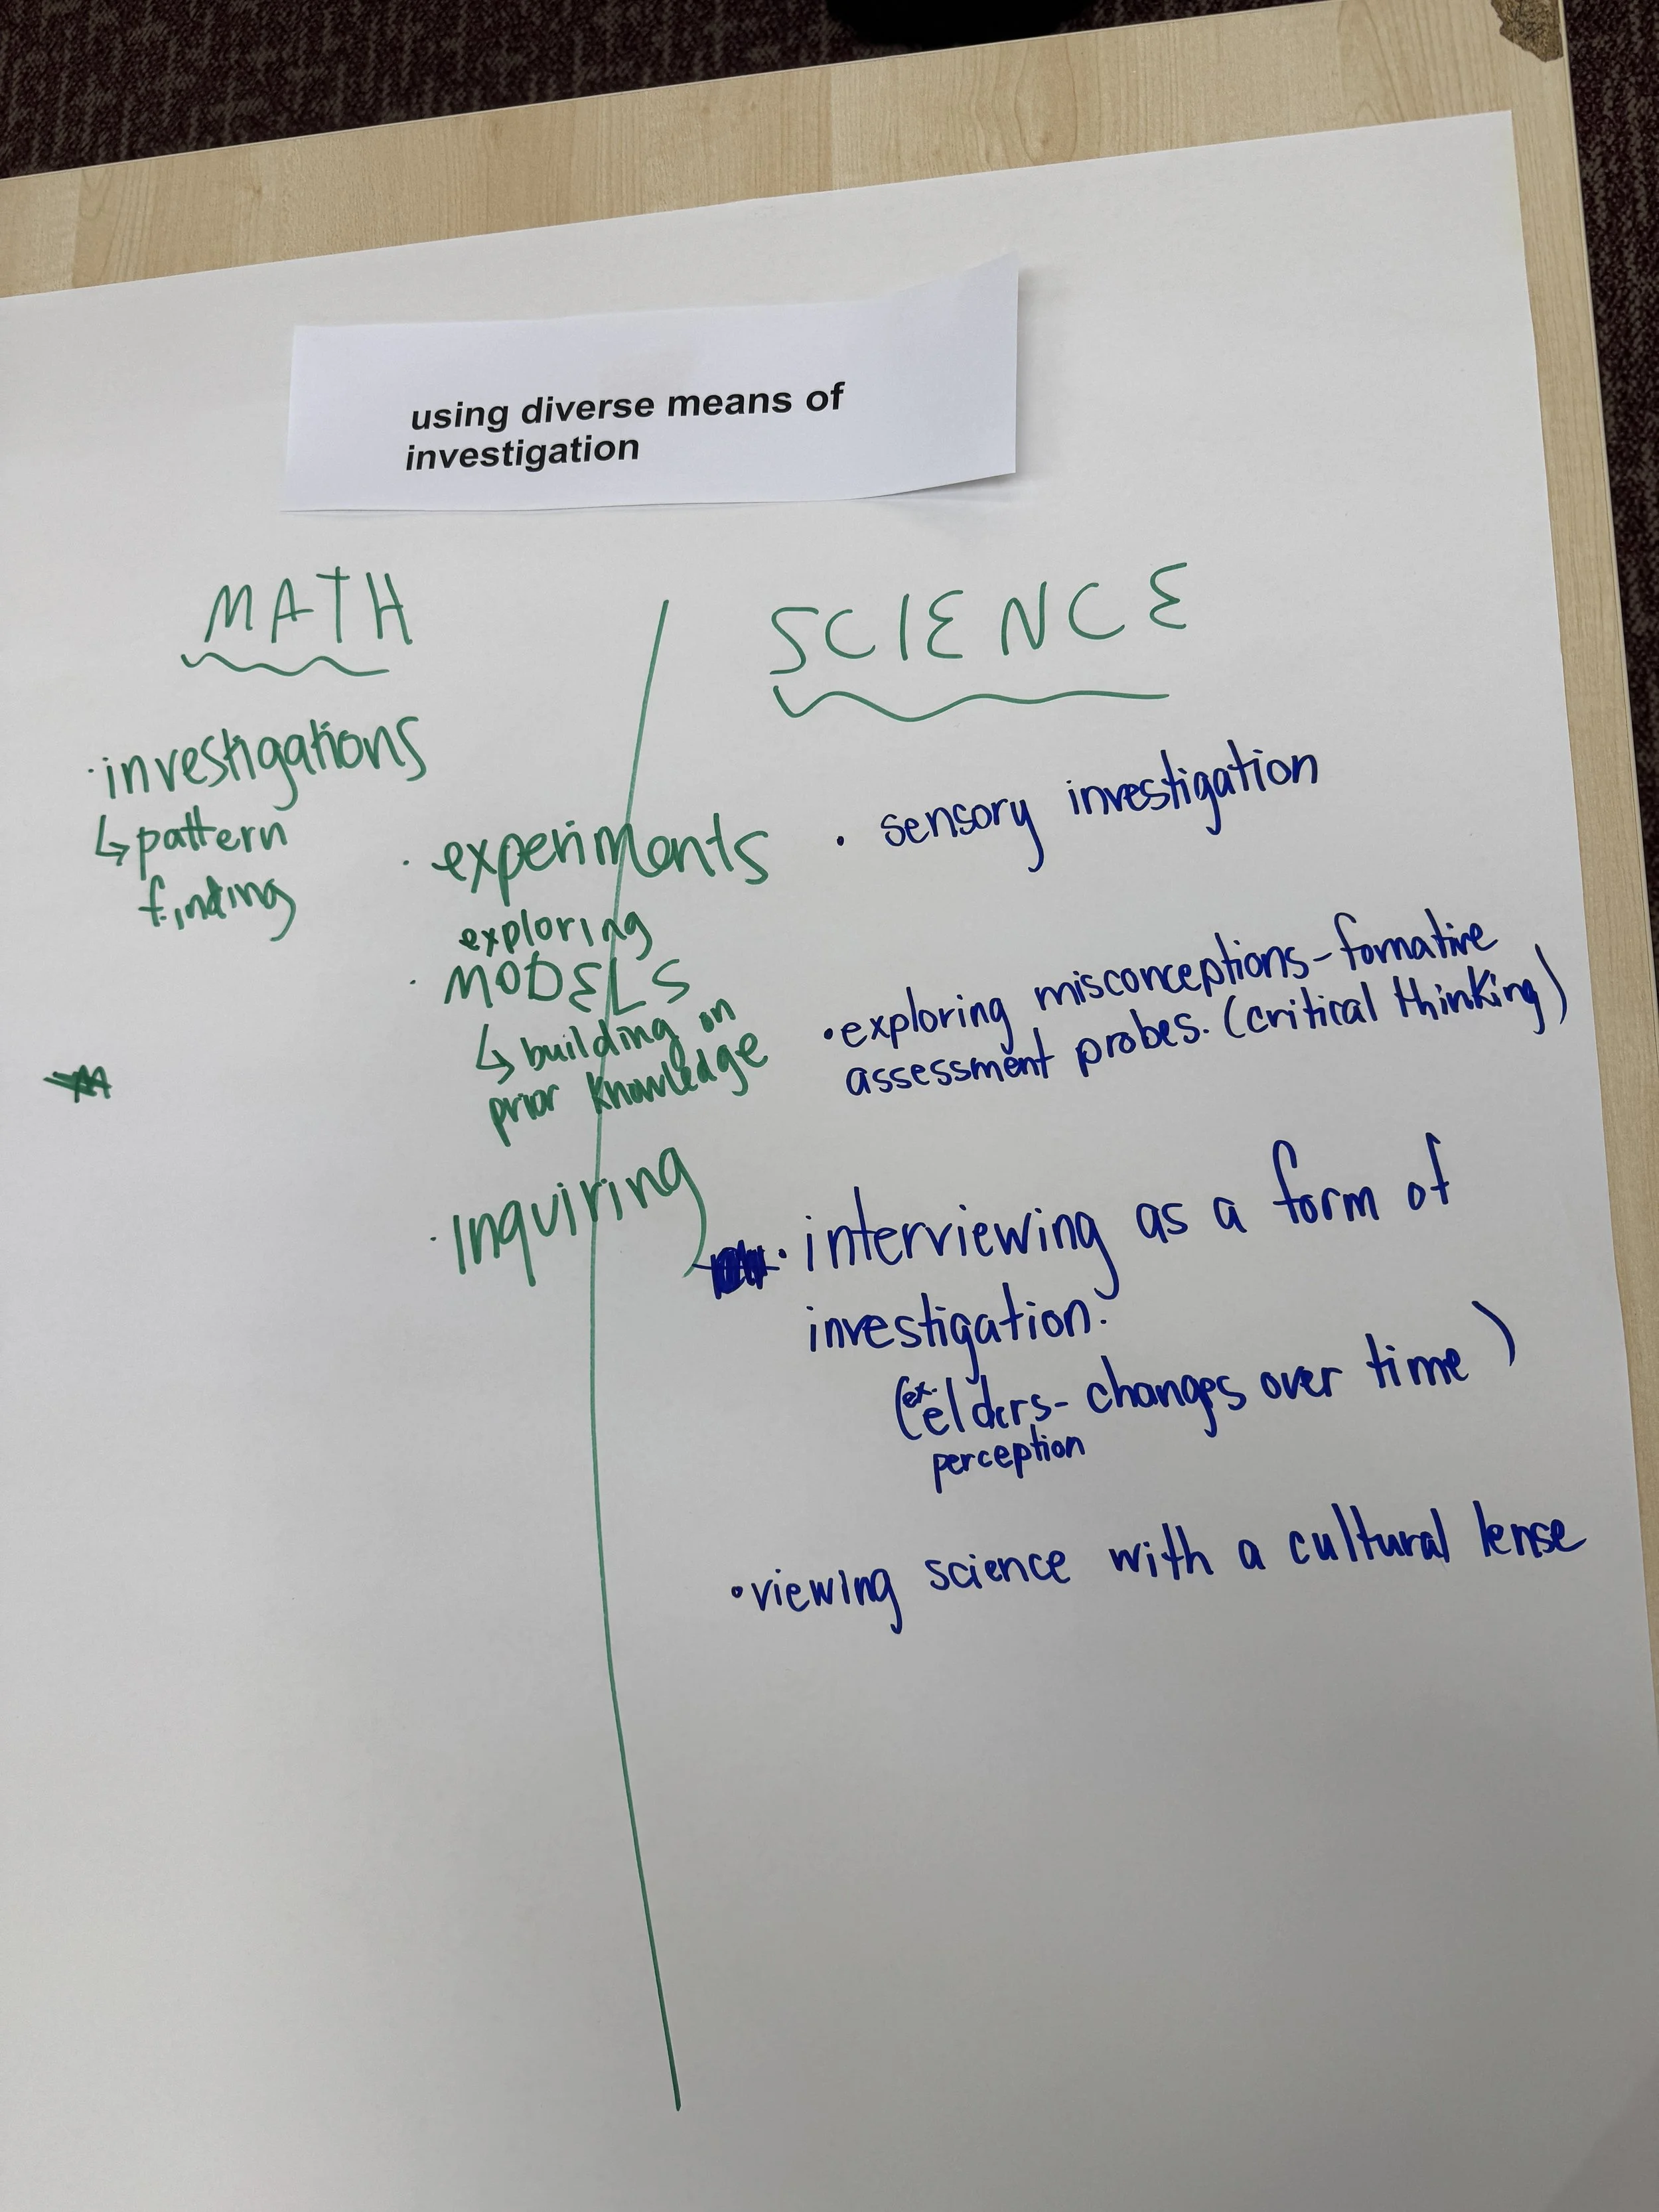 using diverse means of
investigation
MATH
·investigations
↳pattern
finding
· experiments
exploring
· MODELS
↳ building on
prior knowledge
· inquiring
SCIENCE
· sensory investigation
·exploring misconceptions-formative
assessment probes. (critical thinking)
· interviewing as a form of
investigation.
(ex. elders- changes over time)
perception
·viewing science with a cultural lense